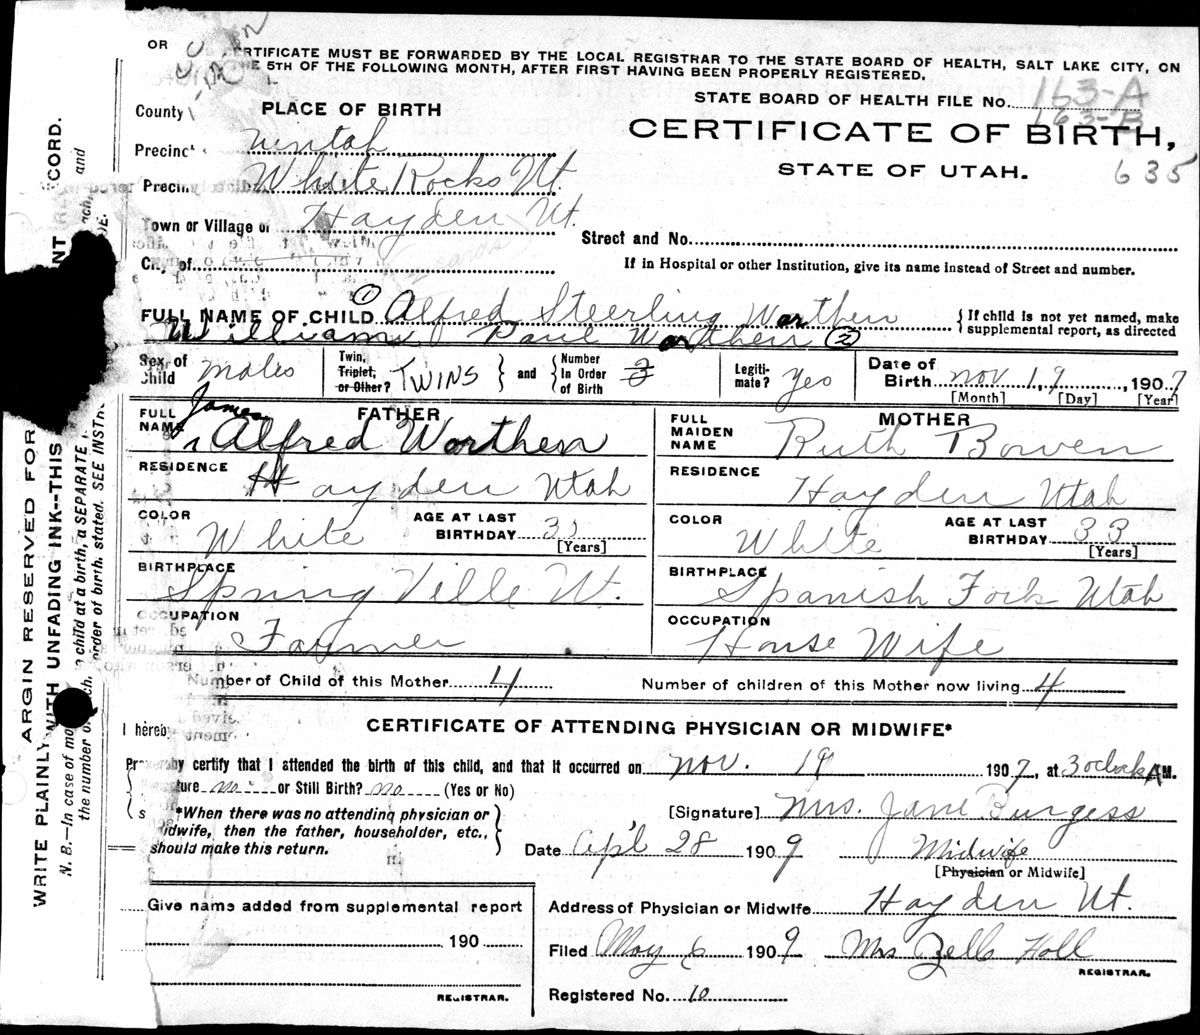 OR
CERTIFICATE MUST BE FORWARDED BY THE LOCAL REGISTRAR TO THE STATE BOARD OF HEALTH, SALT LAKE CITY, ON
THE 5TH OF THE FOLLOWING MONTH, AFTER FIRST HAVING BEEN PROPERLY REGISTERED.
STATE BOARD OF HEALTH FILE No. 163-A
163-B
PLACE OF BIRTH
CERTIFICATE OF BIRTH,
STATE OF UTAH.
635
County
Precinct Uintah
Precin White Rocks Ut.
Town or Village of Hayden Ut.
Street and No.
City of
If in Hospital or other Institution, give its name instead of Street and number.
FULL NAME OF CHILD ① Alfred Steerling Worthen
{If child is not yet named, make supplemental report, as directed
William Paul Worthen ②
Sex of Child males
Twin, Triplet, or Other? TWINS } and { Number In Order of Birth
Legitimate? yes
Date of Birth nov 19, 1907
[Month] [Day] [Year]
FATHER
FULL NAME James Alfred Worthen
RESIDENCE Hayden Utah
COLOR White
AGE AT LAST BIRTHDAY
[Years]
BIRTHPLACE Spring Ville Ut.
OCCUPATION Farmer
MOTHER
FULL MAIDEN NAME Ruth Bowen
RESIDENCE Hayden Utah
COLOR White
AGE AT LAST BIRTHDAY 33
[Years]
BIRTHPLACE Spanish Fork Utah
OCCUPATION House Wife
Number of Child of this Mother 4
Number of children of this Mother now living 4
CERTIFICATE OF ATTENDING PHYSICIAN OR MIDWIFE*
I hereby
certify that I attended the birth of this child, and that it occurred on nov. 19 1907, at 3 oclock A M.
no or Still Birth? no (Yes or No)
*When there was no attending physician or
midwife, then the father, householder, etc.,
should make this return.
[Signature] Mrs. Jane Burgess
Date Apl 28 1909
Midwife
[Physician or Midwife]
Give name added from supplemental report
190
REGISTRAR.
Address of Physician or Midwife Hayden Ut.
Filed May 6 1909 Mrs Zells Holl
REGISTRAR.
Registered No. 10
ARGIN RESERVED FOR
WRITE PLAINLY WITH UNFADING INK--THIS
CORD.
N. B.—In case of
a child at a birth, a SEPARATE
the number of
order of birth, stated. SEE INSTR